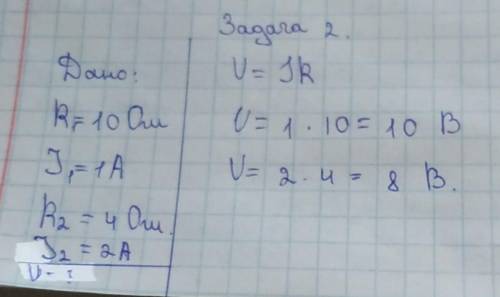 Задача 2.
Дано:
R₁=10 Ом
J₁=1A
R₂ = 4 Ом.
J₂ = 2A
U-?
U= JR
U= 1 · 10 = 10 В
U= 2 · 4 = 8 В.